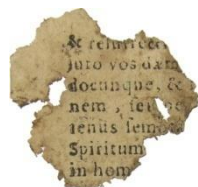 & resurrect
juro vos dæm
docunque, &
nem, 
tenus
Spiritum
in hom